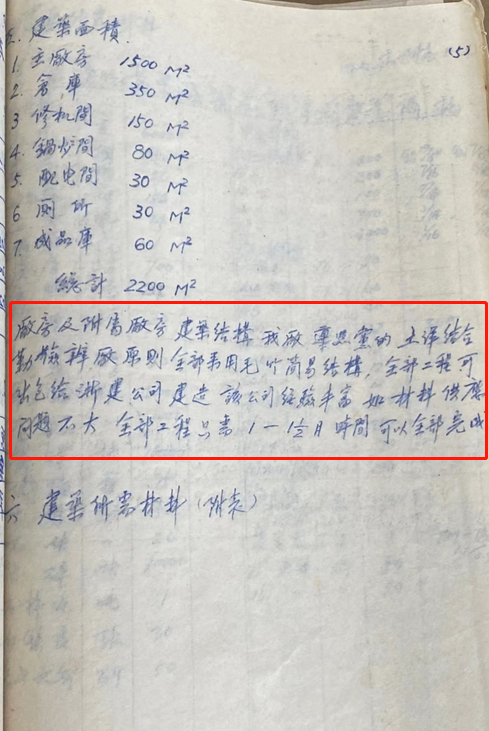 (5)
五. 建築面積.
1. 主廠房 1500 M²
2. 倉庫 350 M²
3 修机間 150 M²
4. 鍋炉間 80 M²
5. 配电間 30 M²
6 厕所 30 M²
7. 成品庫 60 M²
總計 2200 M²
廠房及附属廠房 建築結構 我廠 遵照党的 土洋結合
勤儉辦廠原則 全部采用毛竹简易結構, 全部工程可
出包给浙建公司建造 該公司经驗丰富 如材料供應
问题不大 全部工程只需 1－1½月時間 可以全部完成
六 建築所需材料 (附表)